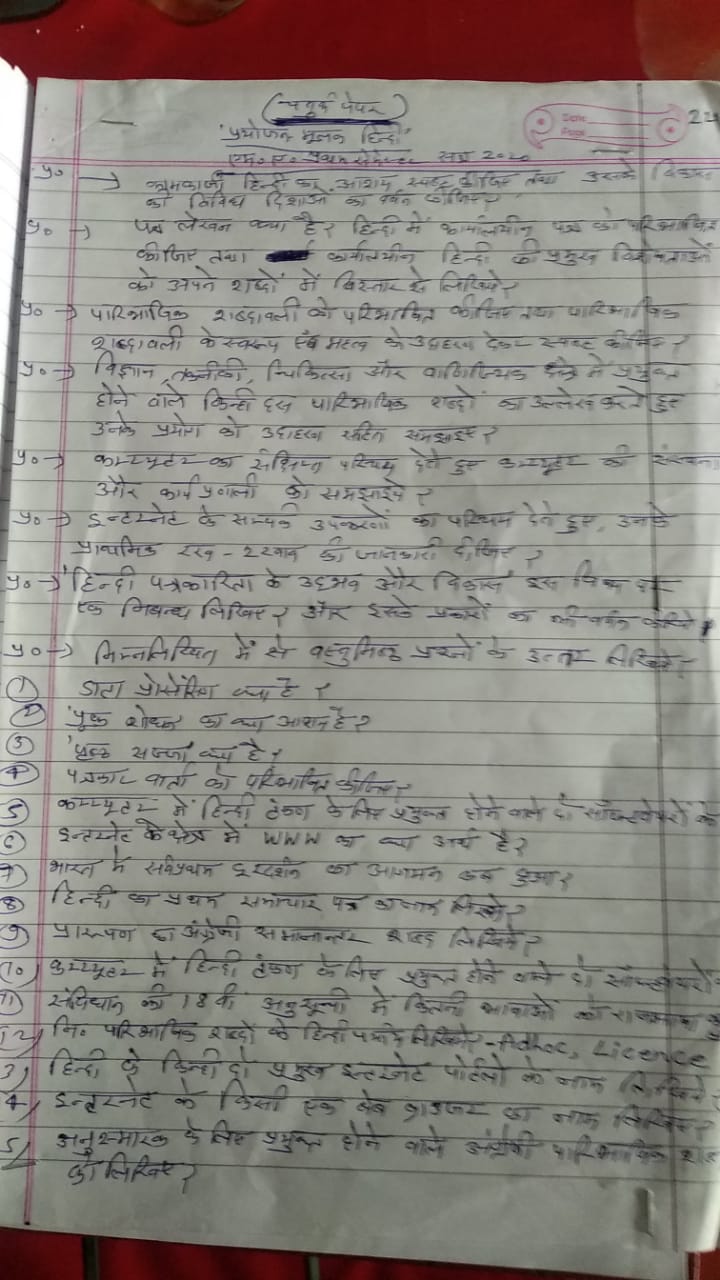 (चतुर्थ पेपर)
Date
Page
22
'प्रयोजन मूलक हिन्दी'
एम. ए. प्रथम सेमेस्टर सत्र 2020
प्र० → कामकाजी हिन्दी का आशय स्पष्ट कीजिए तथा उसके विकास
की विविध दिशाओं का वर्णन कीजिए?
प्र० → पत्र लेखन क्या है? हिन्दी में कार्यालयीन पत्र को परिभाषित
कीजिए तथा कार्यालयीन हिन्दी की प्रमुख विशेषताओं
को अपने शब्दों में विस्तार से लिखिये?
प्र० → पारिभाषिक शब्दावली को परिभाषित कीजिए तथा पारिभाषिक
शब्दावली के स्वरूप एवं महत्व को उदाहरण देकर स्पष्ट कीजिए?
प्र० → विज्ञान, तकनीकी, चिकित्सा और वाणिज्यिक क्षेत्र में प्रयुक्त
होने वाले किन्हीं दस पारिभाषिक शब्दों का उल्लेख करते हुए
उनके प्रयोग को उदाहरण सहित समझाइए?
प्र० → कम्प्यूटर का संक्षिप्त परिचय देते हुए कम्प्यूटर की संरचना
और कार्य प्रणाली को समझाइये?
प्र० → इन्टरनेट के सम्पर्क उपकरणों का परिचय देते हुए, उनके
प्राथमिक रख-रखाव की जानकारी दीजिए?
प्र० → 'हिन्दी पत्रकारिता के उद्भव और विकास' इस विषय पर
एक निबन्ध लिखिए? और इसके प्रकारों का भी वर्णन करिये।
प्र० → निम्नलिखित में से वस्तुनिष्ठ प्रश्नों के उत्तर लिखिये?
① डाटा प्रोसेसिंग क्या है?
② 'प्रूफ शोधन का क्या आशय है?
③ 'पृष्ठ सज्जा' क्या है?
④ पत्रकार वार्ता को परिभाषित कीजिए?
5 कम्प्यूटर में हिन्दी टंकण के लिए प्रयुक्त होने वाले दो सॉफ्टवेयरों के
⑥ इन्टरनेट के क्षेत्र में WWW का क्या अर्थ है?
7 भारत में सर्वप्रथम दूरदर्शन का आगमन कब हुआ?
8 हिन्दी का प्रथम समाचार पत्र का नाम लिखो?
9 प्रारूपण का अंग्रेजी समानान्तर शब्द लिखिये?
10) कम्प्यूटर में हिन्दी टंकण के लिए प्रयुक्त होने वाले दो सॉफ्टवेयरों
11) संविधान की 18 वी अनुसूची में कितनी भाषाओं को राजभाषा
12) नि० परिभाषिक शब्दों के हिन्दी पर्याय लिखिये - Adhoc, Licence
3) हिन्दी के किन्हीं दो प्रमुख इन्टरनेट पोर्टलों के नाम लिखिये
4) इन्टरनेट के किसी एक वेब ब्राउजर का नाम लिखिए?
5) अनुस्मारक के लिए प्रयुक्त होने वाले अंग्रेजी पारिभाषिक
को लिखिए?